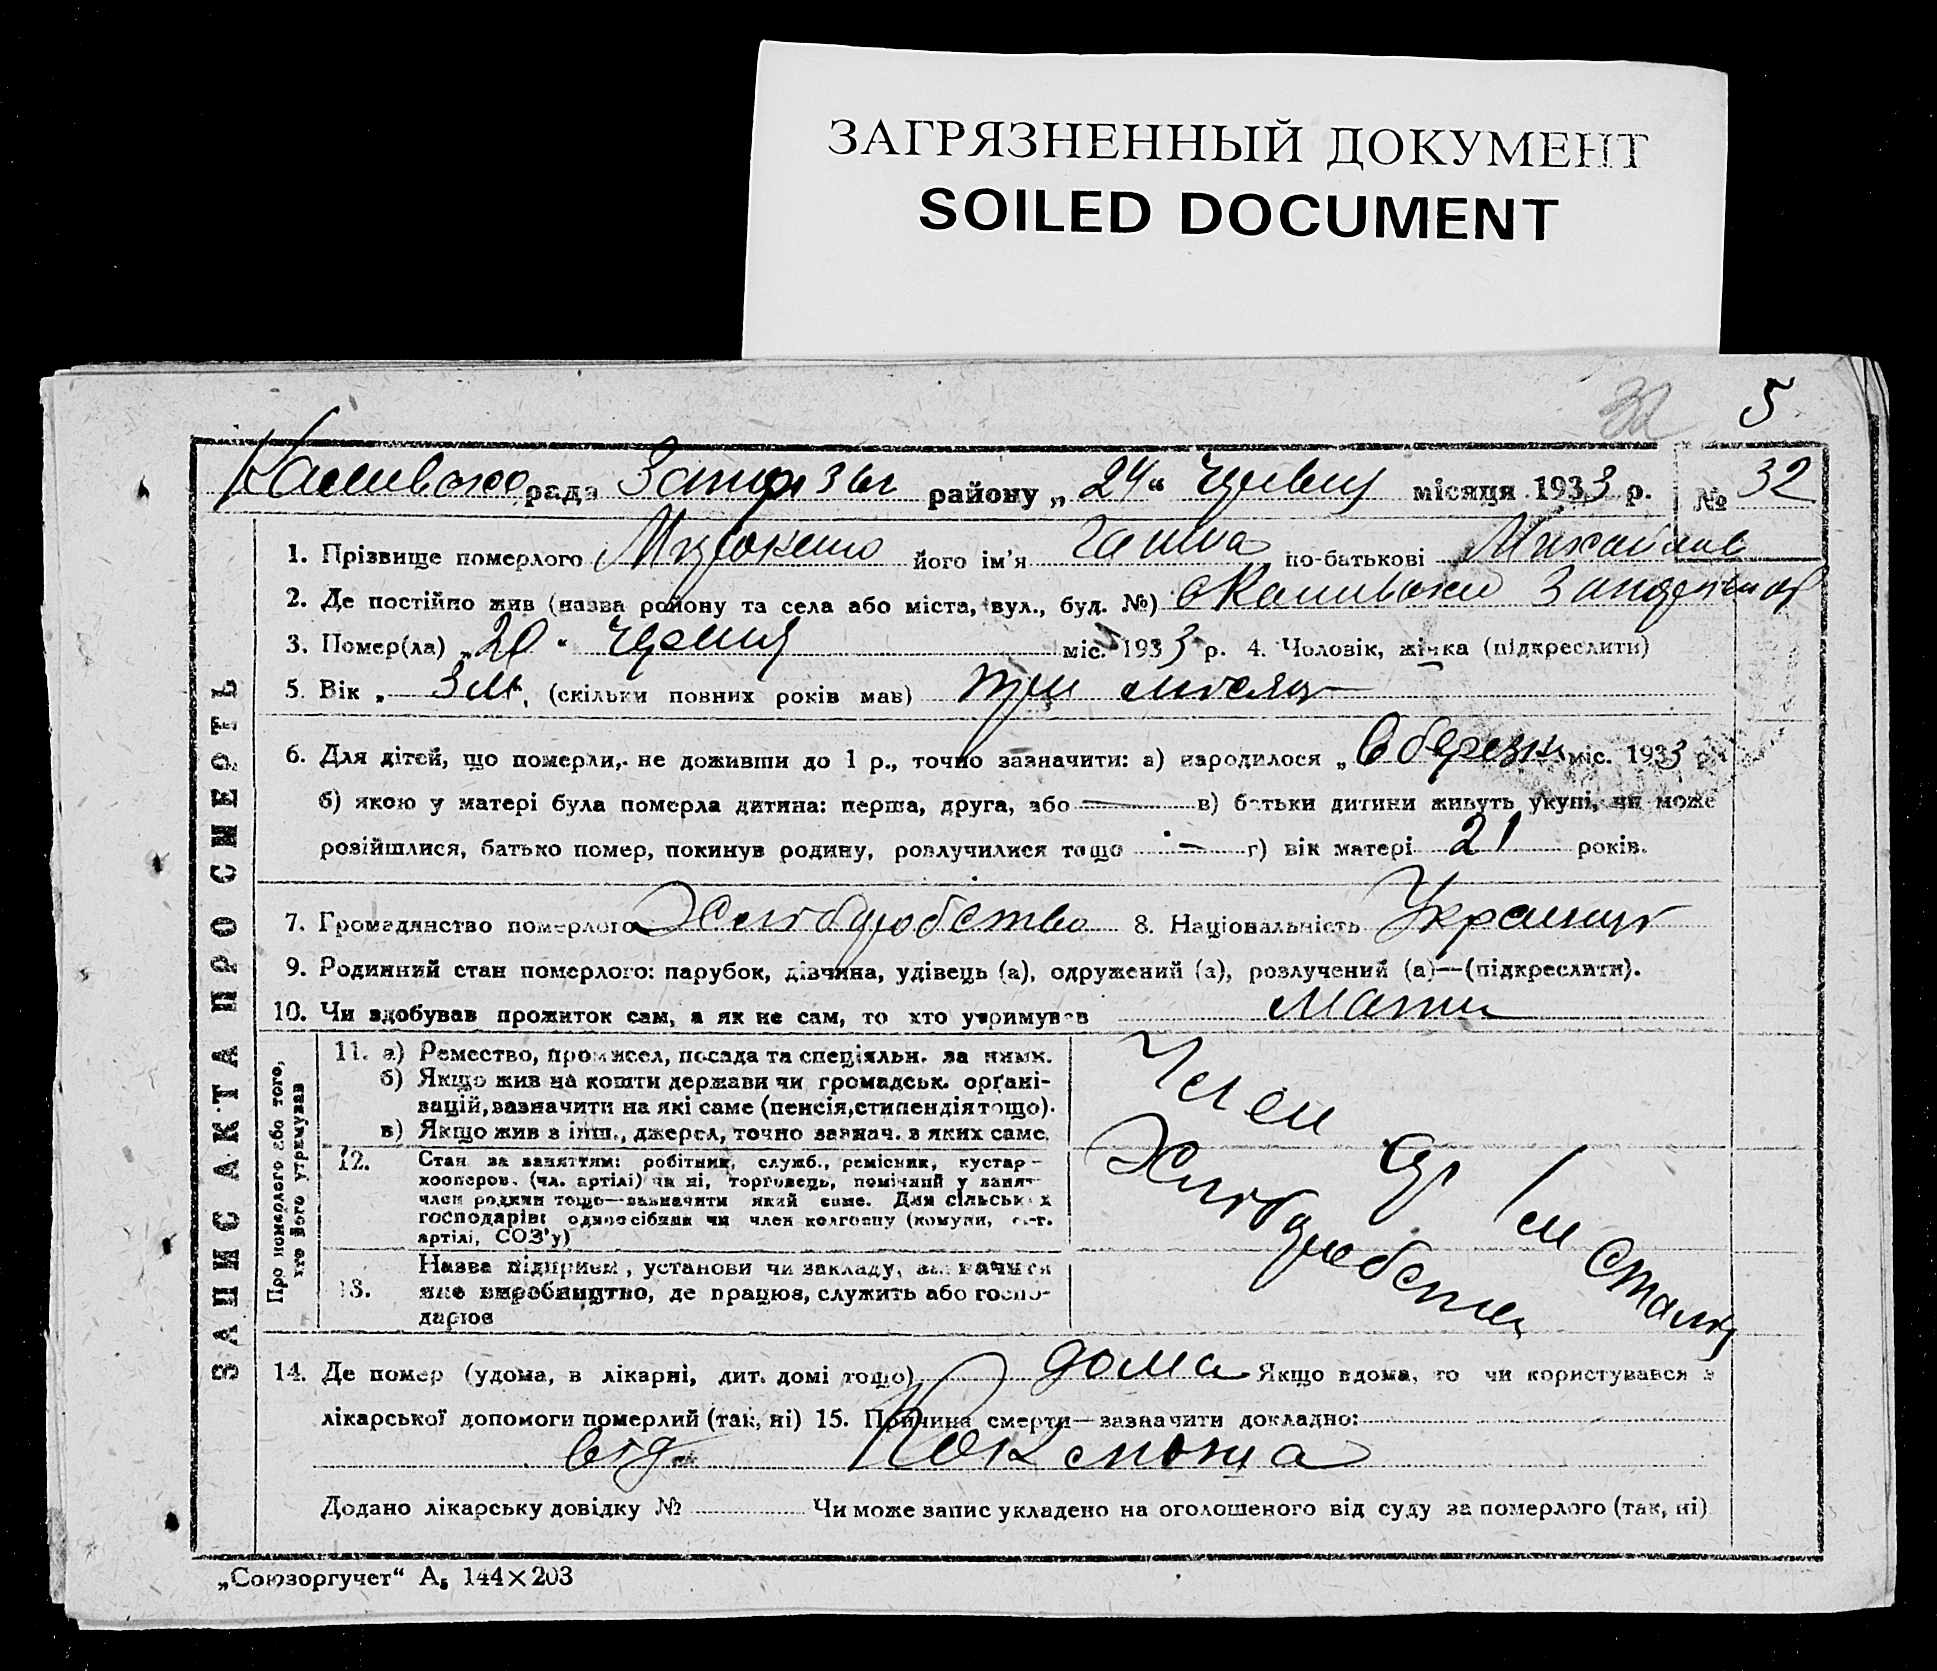 ЗАГРЯЗНЕННЫЙ ДОКУМЕНТ
SOILED DOCUMENT
32 5
рада району „24“ місяця 1933 р. № 32
1. Прізвище померлого його ім'я Ганна по-батькові
2. Де постійно жив (назва району та села або міста, вул., буд. №)
3. Помер(ла) „20“ міс. 1933 р. 4. Чоловік, жінка (підкреслити)
5. Вік „ 3 м. (скільки повних років мав) три місяц
6. Для дітей, що померли, не доживши до 1 р., точно зазначити: а) народилося „6 березн міс. 1933 р.
б) якою у матері була померла дитина: перша, друга, або — в) батьки дитини живуть укупі, чи може
розійшлися, батько помер, покинув родину, розлучилися тощо — г) вік матері 21 років.
7. Громадянство померлого Хліборобство 8. Національність
9. Родинний стан померлого: парубок, дівчина, удівець (а), одружений (а), розлучений (а)—(підкреслити).
10. Чи здобував прожиток сам, а як не сам, то хто утримував мати
ЗАПИС АКТА ПРО СМЕРТЬ
Про померлого або того, хто його утримував
11. а) Ремество, промисел, посада та спеціяльн. за ними.
б) Якщо жив на кошти держави чи громадськ. орґані-
зацій, зазначити на які саме (пенсія, стипендія тощо).
в) Якщо жив з інш., джерел, точно зазнач. з яких саме.
Член
12. Стан за заняттям: робітник, служб., ремісник, кустар-
кооперов. (чл. артілі) чи ні, торговець, помічний у занят.
член родини тощо—зазначити який саме. Для сільських
господарів: одноосібник чи член колгоспу (комуни, с.-г.
артілі, СОЗ'у)
ім Сталін
13. Назва підприєм., установи чи закладу, зазначити
яке виробництво, де працює, служить або госпо-
дарює
14. Де помер (удома, в лікарні, дит. домі тощо) дома Якщо вдома, то чи користувався з
лікарської допомоги померлий (так, ні) 15. Причина смерти—зазначити докладно:
від Коклюша
Додано лікарську довідку № Чи може запис укладено на оголошеного від суду за померлого (так, ні)
„Союзоргучет“ А₅ 144×203